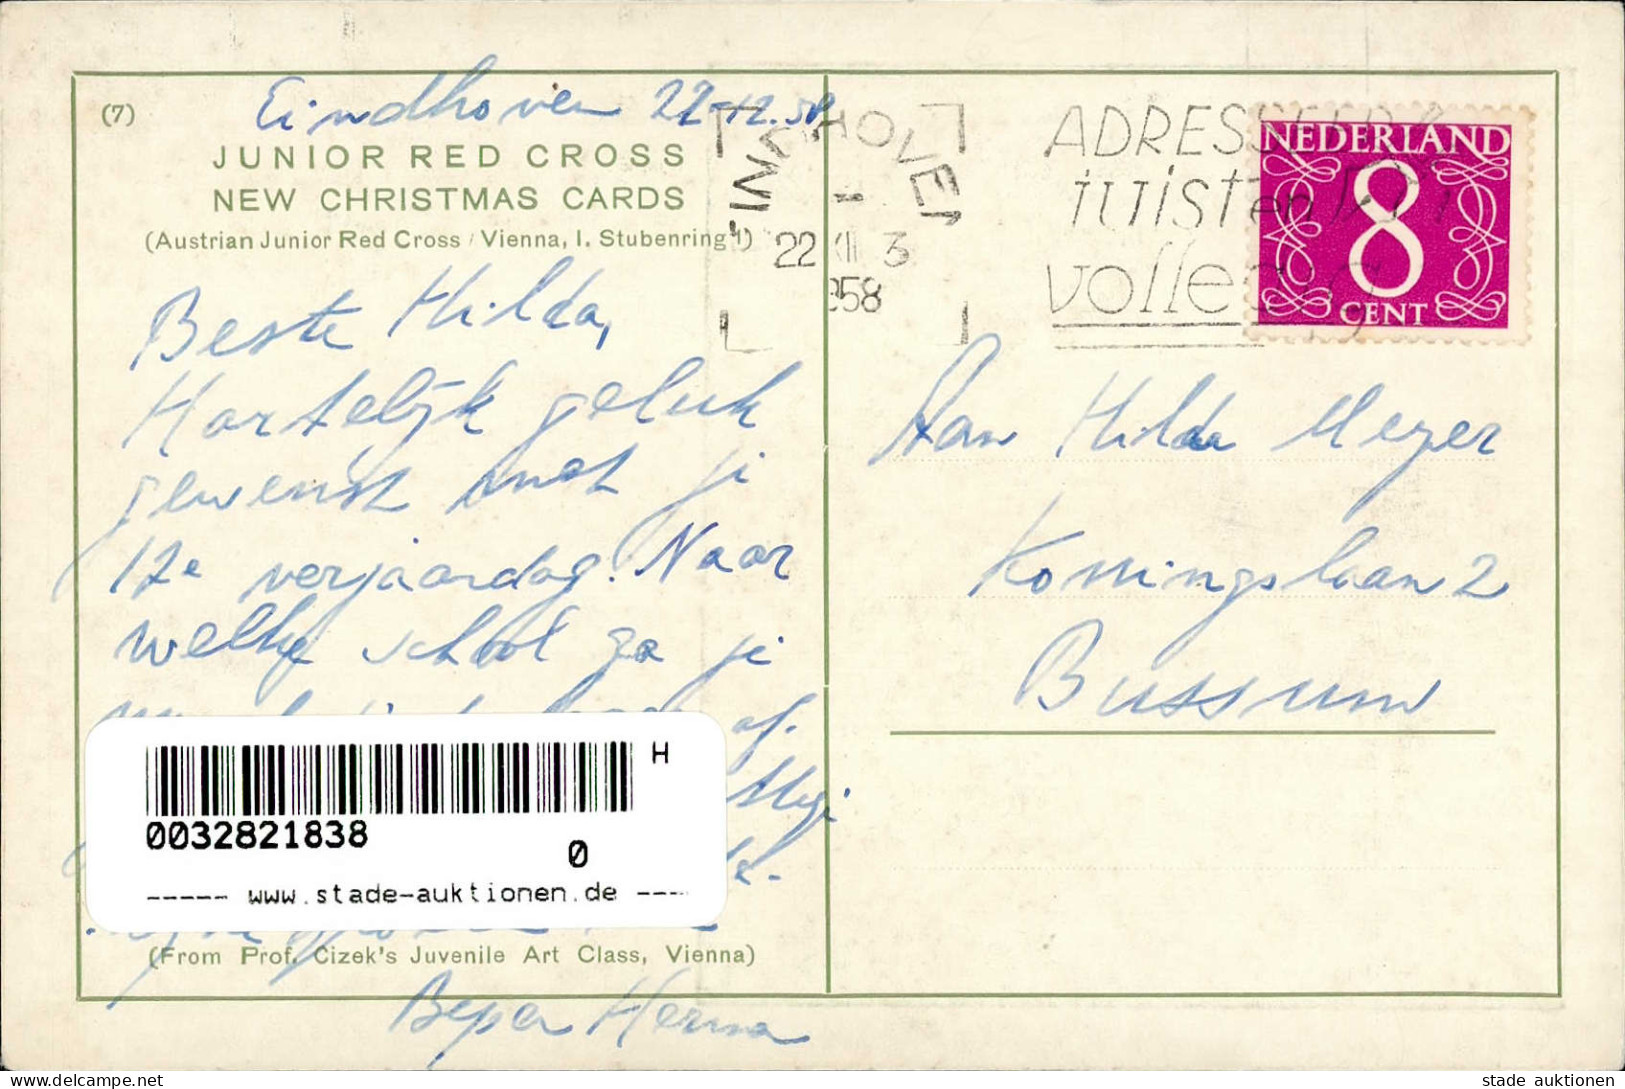 (7)
Eindhoven 22-12.58
JUNIOR RED CROSS
NEW CHRISTMAS CARDS
(Austrian Junior Red Cross / Vienna, I. Stubenring 1)
Beste Hilda,
Hartelijk geluk
gewenst met je
17e verjaardag. Naar
welke school ga je
af.
H
0032821838
0
----- www.stade-auktionen.de ----
(From Prof. Cizek's Juvenile Art Class, Vienna)
Herma
EINDHOVEN
22 XII 3
1958
ADRESSEER
juist en
volledig
NEDERLAND
8
CENT
Aan Hilda Meyer
Koningslaan 2
Bussum
https://www.delcampe.net
stade auktionen